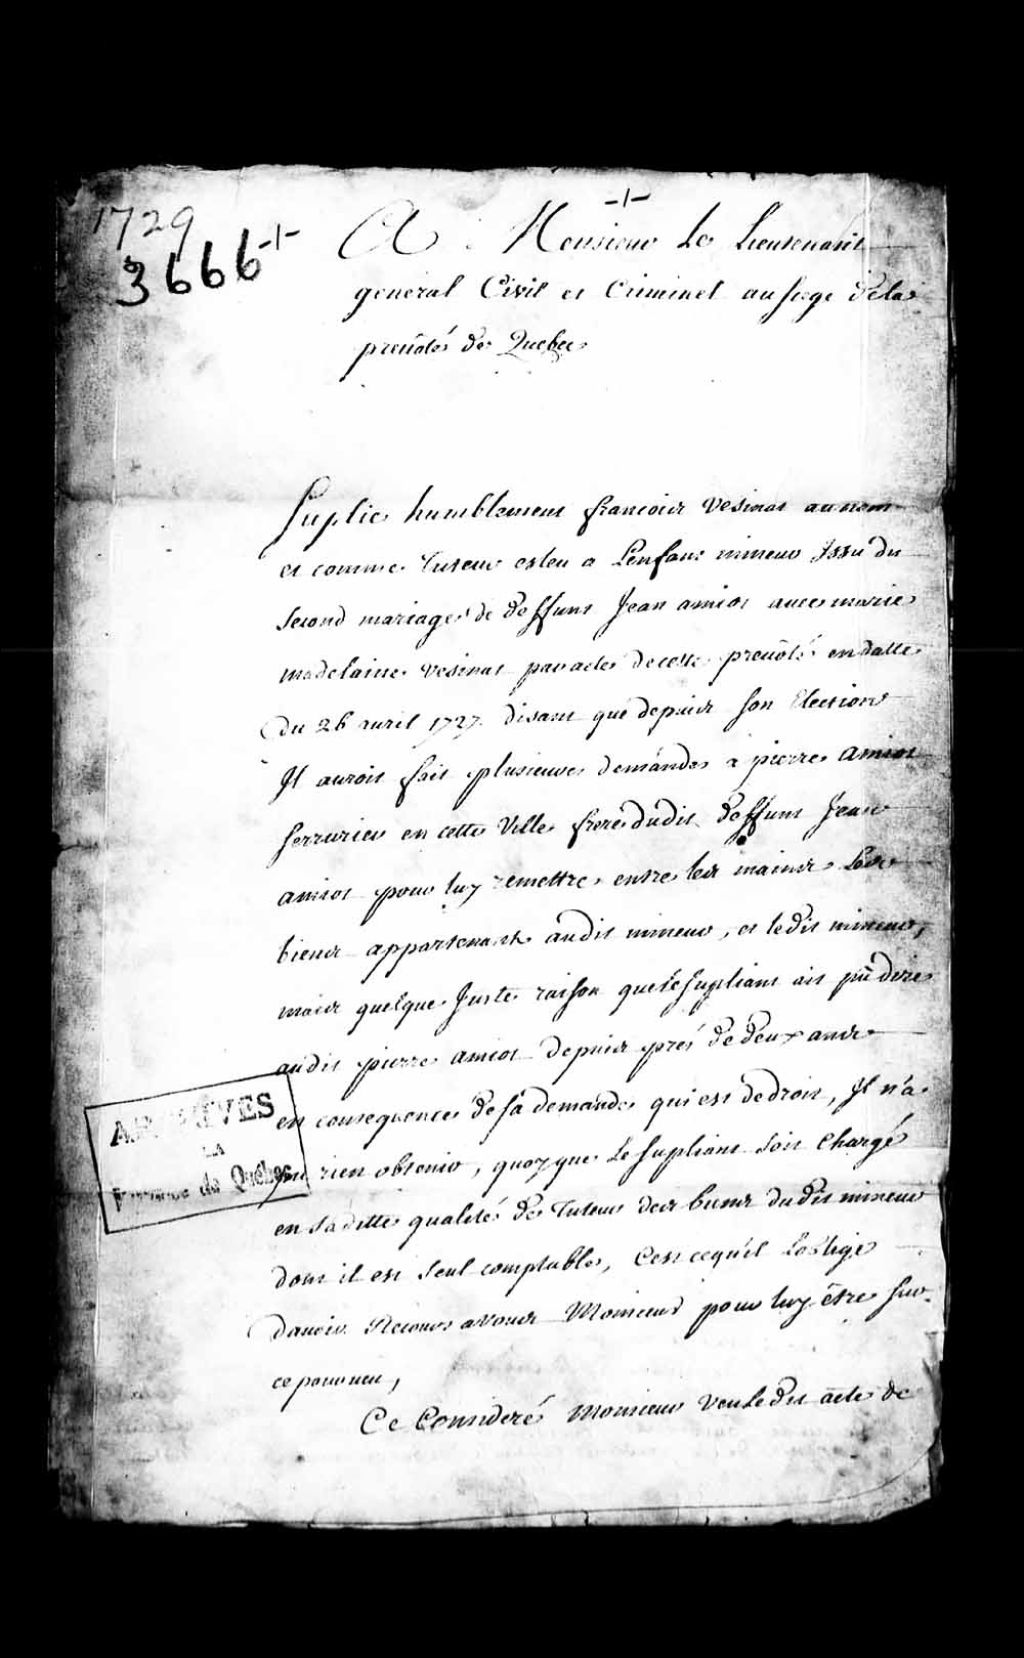 1729
3666
A Monsieur Le Lieutenant
general Civil et Criminel au siege de la
prevôté de Quebec
Suplie humblement francois vesinat au nom
et comme Tuteur esleu a L'enfant mineur Issu du
second mariage de deffunt Jean amiot avec marie
madelaine vesinat par acte de cette prevôté en datte
du 26 avril 1727 disant que depuis son Election
Il auroit fait plusieures demandes a pierre amiot
serrurier en cette Ville frere dudit deffunt Jean
amiot pour luy remettre entre les mains Les
biens appartenant audit mineur, et ledit mineur,
mais quelque Juste raison que le supliant ait pû dire
audit pierre amiot depuis prés de deux ans
en consequence de sa demande qui est de droit, Il n'a
pu rien obtenir, quoyque Le supliant soit chargé
en sa ditte qualité de Tuteur des biens dudit mineur
dont il est seul comptable, C'est ce qu'il L'oblige
d'avoir Recours a vous Monsieur pour luy être sur
ce pourveu,
Ce Consideré Monsieur veu Ledit acte de
ARCHIVES
LA
Province de Québec